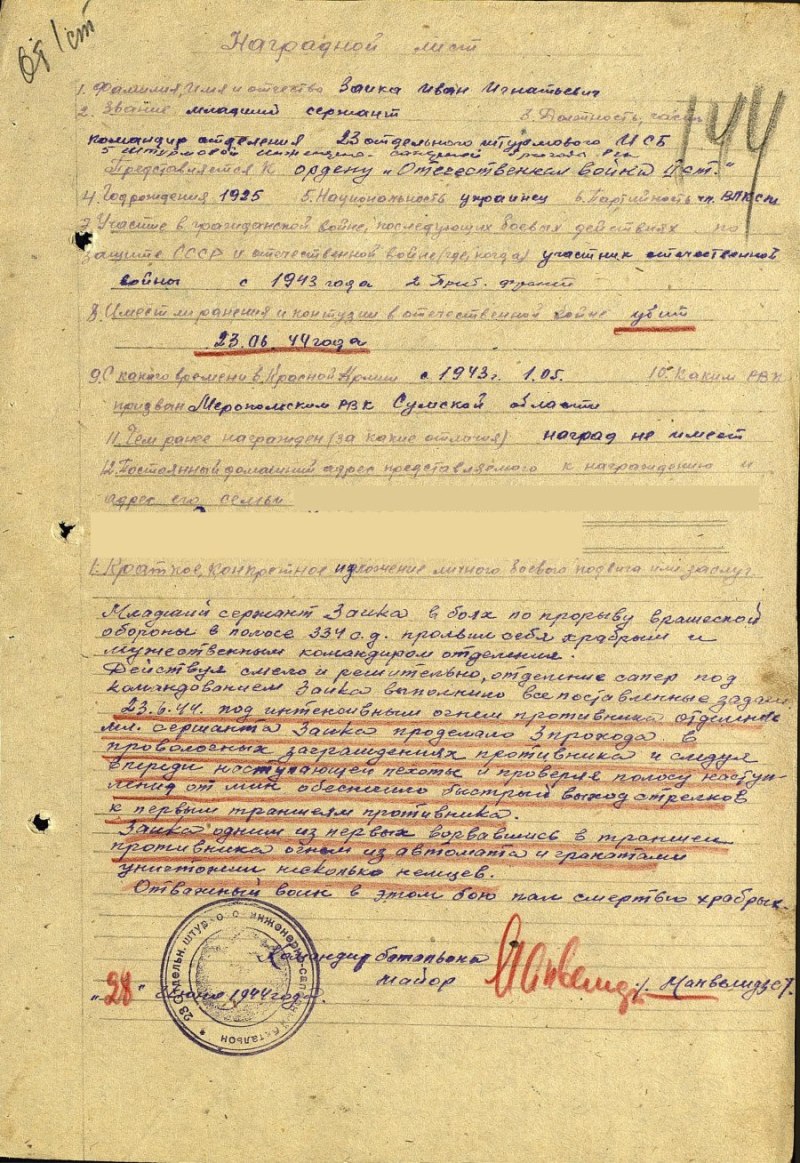 ОВ 1 ст
Наградной лист
144
1. Фамилия, Имя и отчество Заика Иван Игнатьевич
2. Звание младший сержант 3. Должность, часть
командир отделения 23 отдельного штурмового ИСБ
5 штурмовой инженерно-саперной бригады РГК
Представляется к ордену "Отечественная война I ст."
4. Год рождения 1925 5. Национальность украинец 6. Партийность чл. ВЛКСМ
7. Участие в гражданской войне, последующих боевых действиях по
защите СССР и отечественной войне (где, когда) участник отечественной
войны с 1943 года 2 Приб. фронт
8. Имеет ли ранения и контузии в отечественной войне убит
23.06.44 года
9. С какого времени в Красной Армии с 1943 г. 1.05. 10. Каким РВК
призван Меропольским РВК Сумской области
11. Чем ранее награжден (за какие отличия) наград не имеет
12. Постоянный домашний адрес представляемого к награждению и
адрес его семьи
1. Краткое, конкретное изложение личного боевого подвига или заслуг.
Младший сержант Заика в боях по прорыву вражеской
обороны в полосе 334 с.д. проявил себя храбрым и
мужественным командиром отделения.
Действуя смело и решительно, отделение сапер под
командованием Заика выполнило все поставленные задачи
23.6.44. под интенсивным огнем противника отделение
мл. сержанта Заика проделало 3 прохода в
проволочных заграждениях противника и следуя
впереди наступающей пехоты и проверяя полосу наступ-
ления от мин обеспечило быстрый выход стрелков
к первым траншеям противника.
Заика одним из первых ворвавшись в траншеи
противника огнем из автомата и гранатами
уничтожил несколько немцев.
Отважный воин в этом бою пал смертью храбрых.
Командир батальона
майор /. Манвелидзе /.
"28" июня 1944 года.